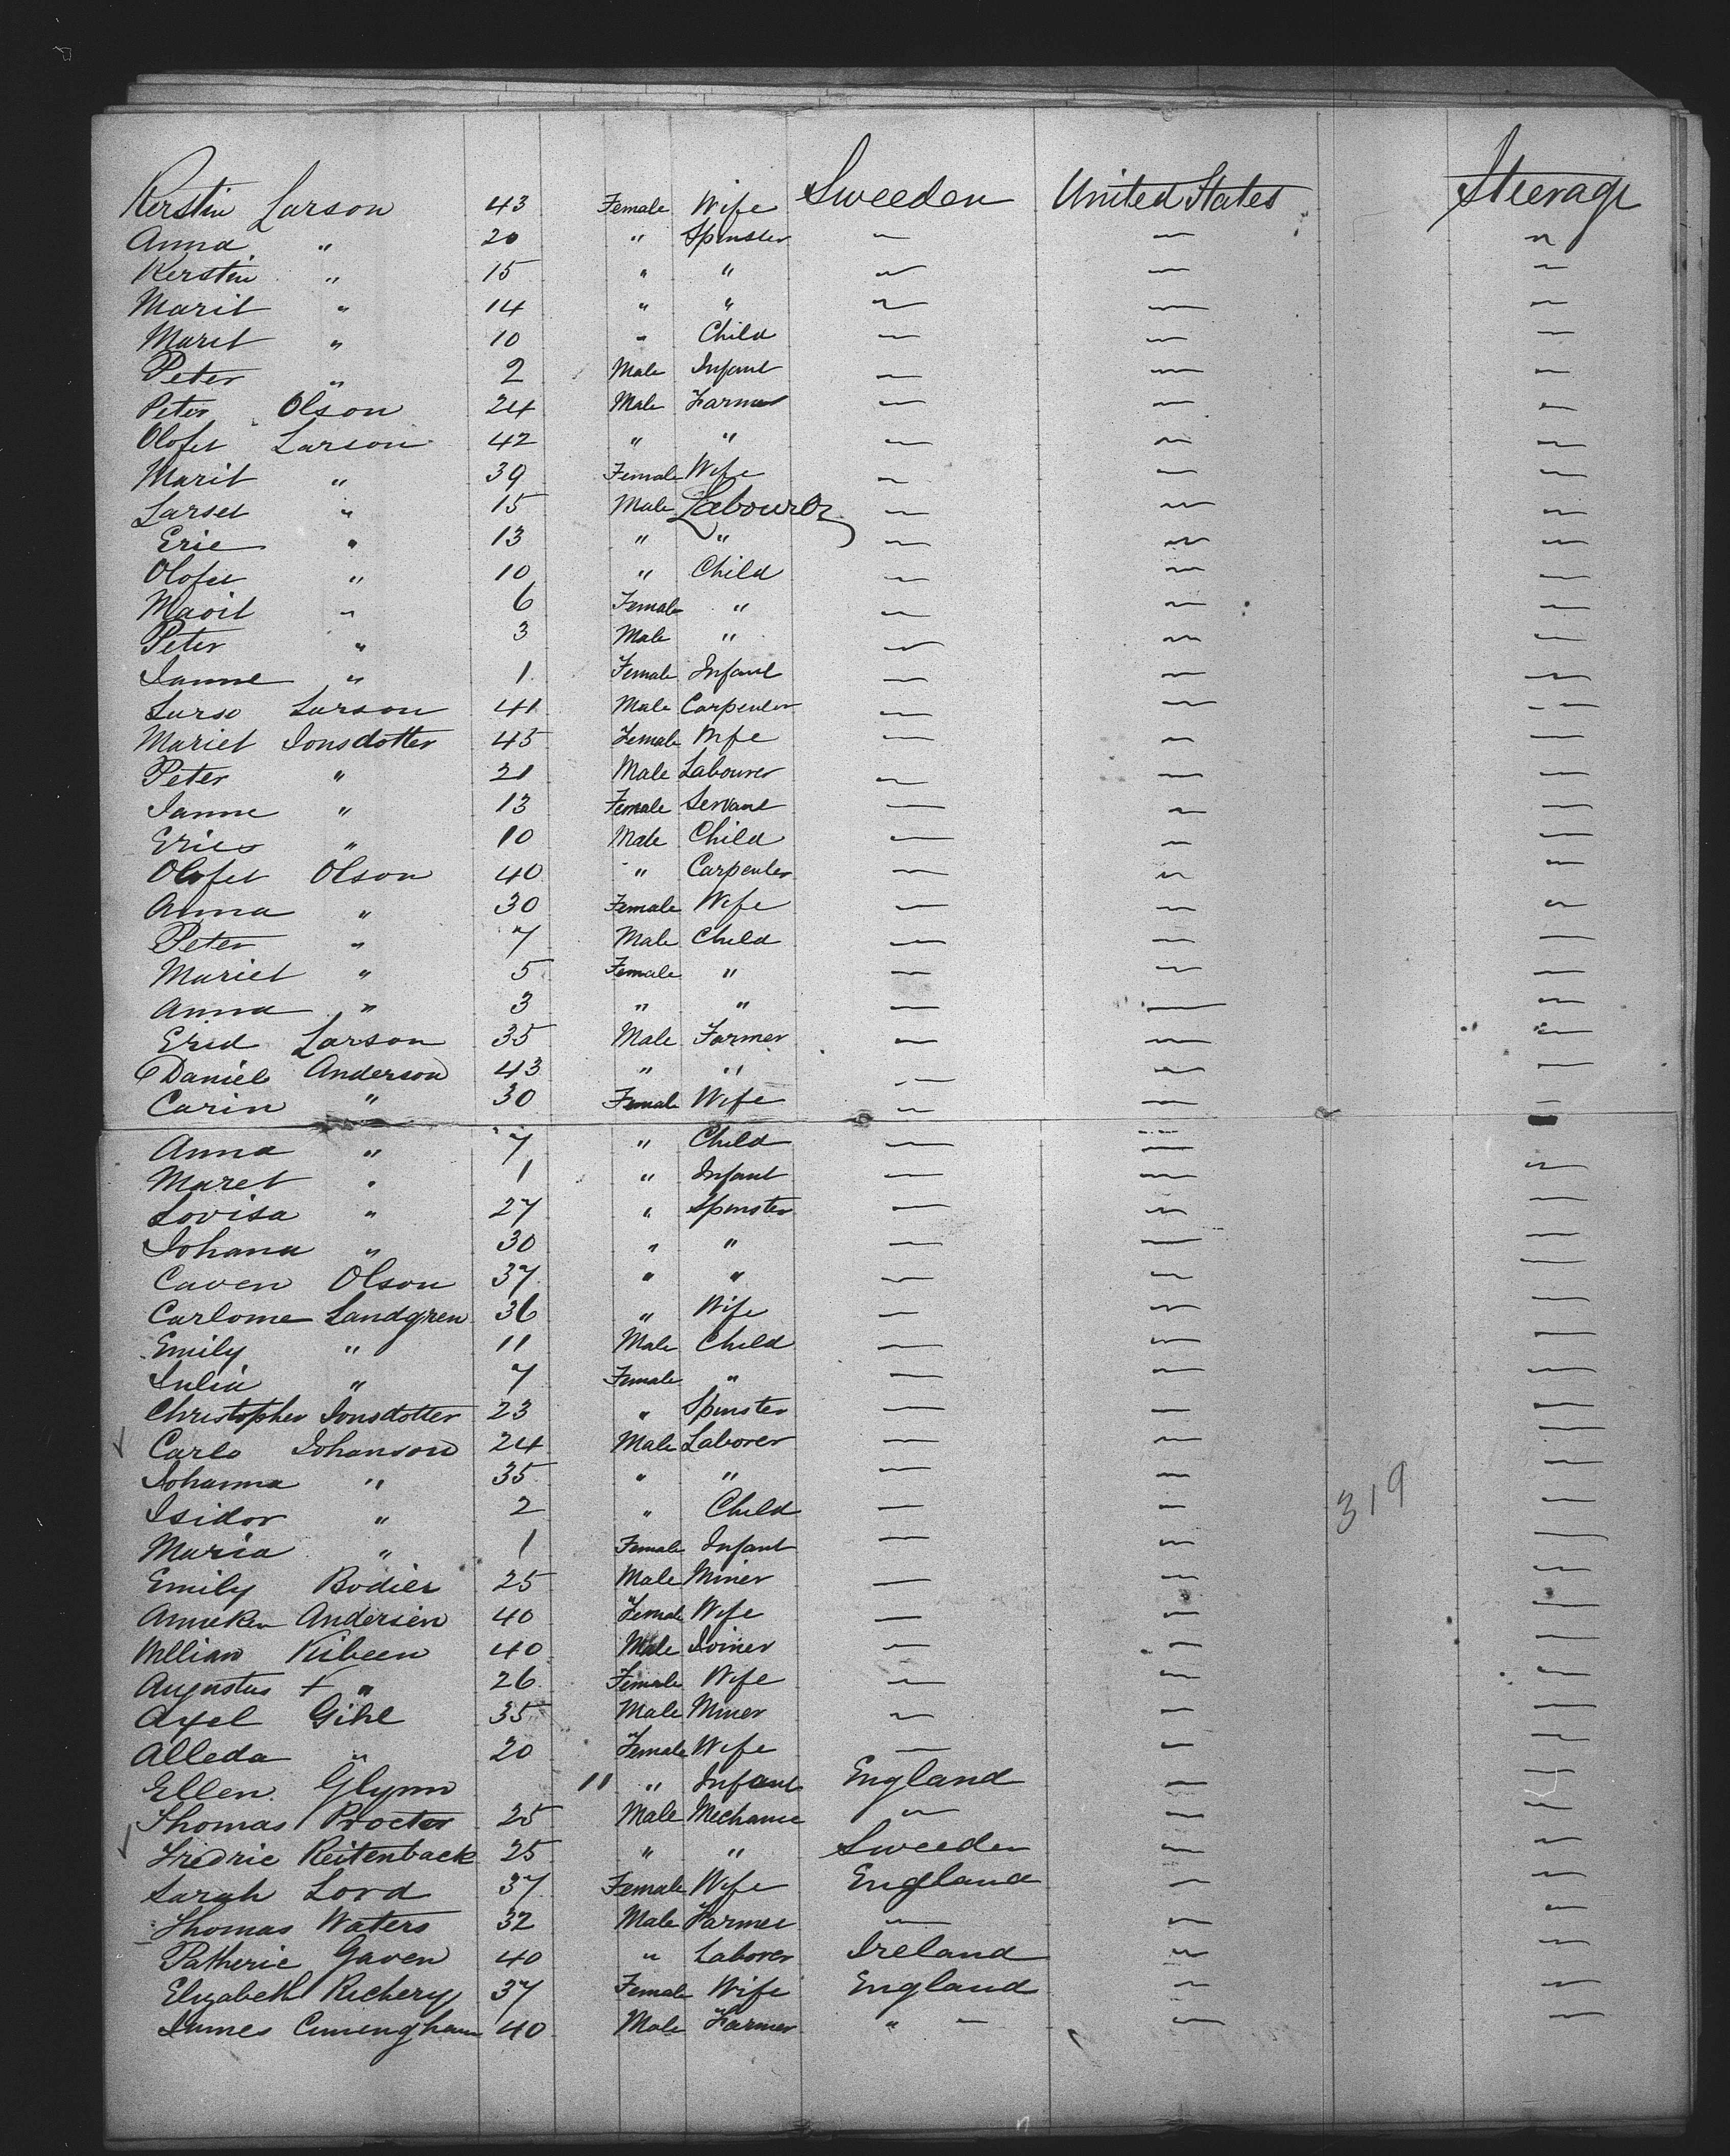 Kerstin Larson 43 Female Wife Sweeden United States Steerage
Anna " 20 " Spinster — — —
Kerstin " 15 " " — — —
Marit " 14 " " — — —
Maret " 10 " Child — — —
Peter " 2 Male Infant — — —
Peter Olson 24 Male Farmer — — —
Olofet Larson 42 " " — — —
Marit " 39 Female Wife — — —
Larset " 15 Male Labourer — — —
Eric " 13 " " — — —
Olofet " 10 " Child — — —
Marit " 6 Female " — — —
Peter " 3 Male " — — —
Ianne " 1 Female Infant — — —
Larso Larson 41 Male Carpenter — — —
Mariet Ionsdotter 45 Female Wife — — —
Peter " 21 Male Labourer — — —
Ianne " 13 Female Servant — — —
Erics " 10 Male Child — — —
Olofet Olson 40 " Carpenter — — —
Anna " 30 Female Wife — — —
Peter " 7 Male Child — — —
Mariet " 5 Female " — — —
Anna " 3 " " — — —
Erid Larson 35 Male Farmer — — —
Daniel Anderson 43 " " — — —
Carin " 30 Female Wife — — —
Anna " 7 " Child — — —
Maret " 1 " Infant — — —
Lovisa " 27 " Spinster — — —
Iohana " 30 " " — — —
Caven Olson 37 " " — — —
Carlome Landgren 36 " Wife — — —
Emily " 11 Male Child — — —
Iulia " 7 Female " — — —
Christopher Ionsdotter 23 " Spinster — — —
Carlo Iohanson 24 Male Laborer — — —
Iohanna " 35 " " — — —
Isidor " 2 " Child — 319 — —
Maria " 1 Female Infant — — —
Emily Bodier 25 Male Miner — — —
Anneken Andersen 40 Female Wife — — —
William Kibeen 40 Male Ioiner — — —
Augustus + " 26 Female Wife — — —
Axel Gihl 35 Male Miner — — —
Alleda " 20 Female Wife — — —
Ellen Glynn 11 " Infant England — —
Thomas Procter 25 Male Mechanic " — —
Fredric Reitenback 25 " " Sweeden — —
Sarah Lord 37 Female Wife England — —
Thomas Waters 32 Male Farmer — — —
Patheric Gaven 40 " Laborer Ireland — —
Elizabeth Richery 37 Female Wife England — —
Iames Cuningham 40 Male Farmer " — — —